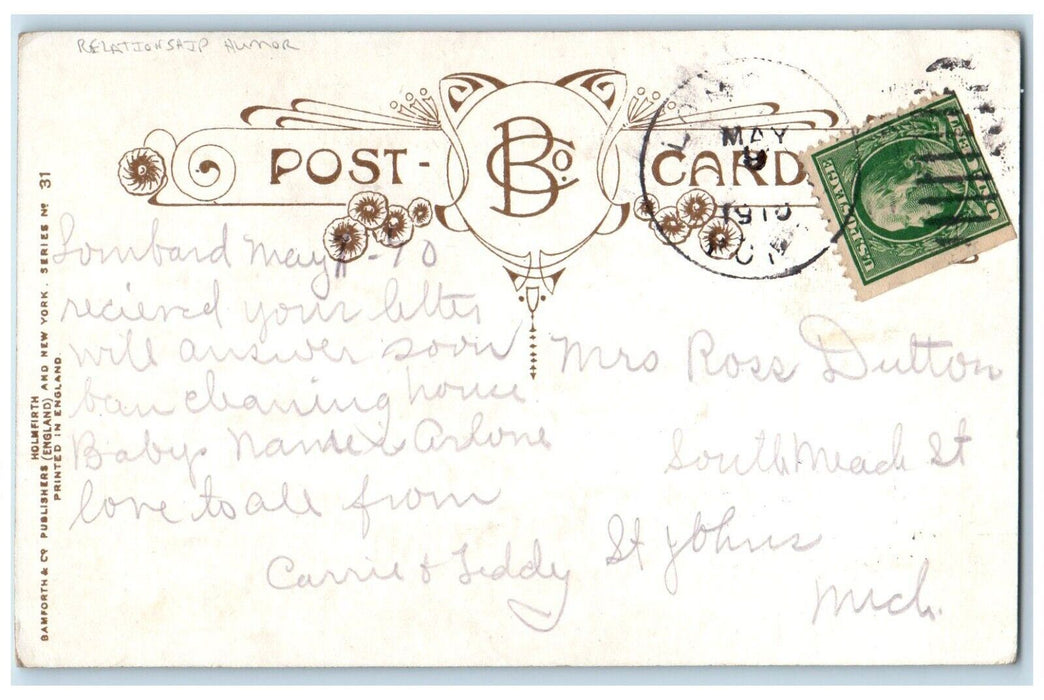 RELATIONSHIP HUMOR
POST- BCo CARD
MAY
9
1910
U.S. POSTAGE
BAMFORTH & Co PUBLISHERS (ENGLAND) AND NEW YORK. SERIES No 31
HOLMFIRTH
PRINTED IN ENGLAND.
Lombard May -10
recieved your letter
will answer soon
ban cleaning house
Babys Name Arlone
love to all from
Carrie & Teddy
Mrs Ross Dutton
South Mead St
St Johns
Mich.